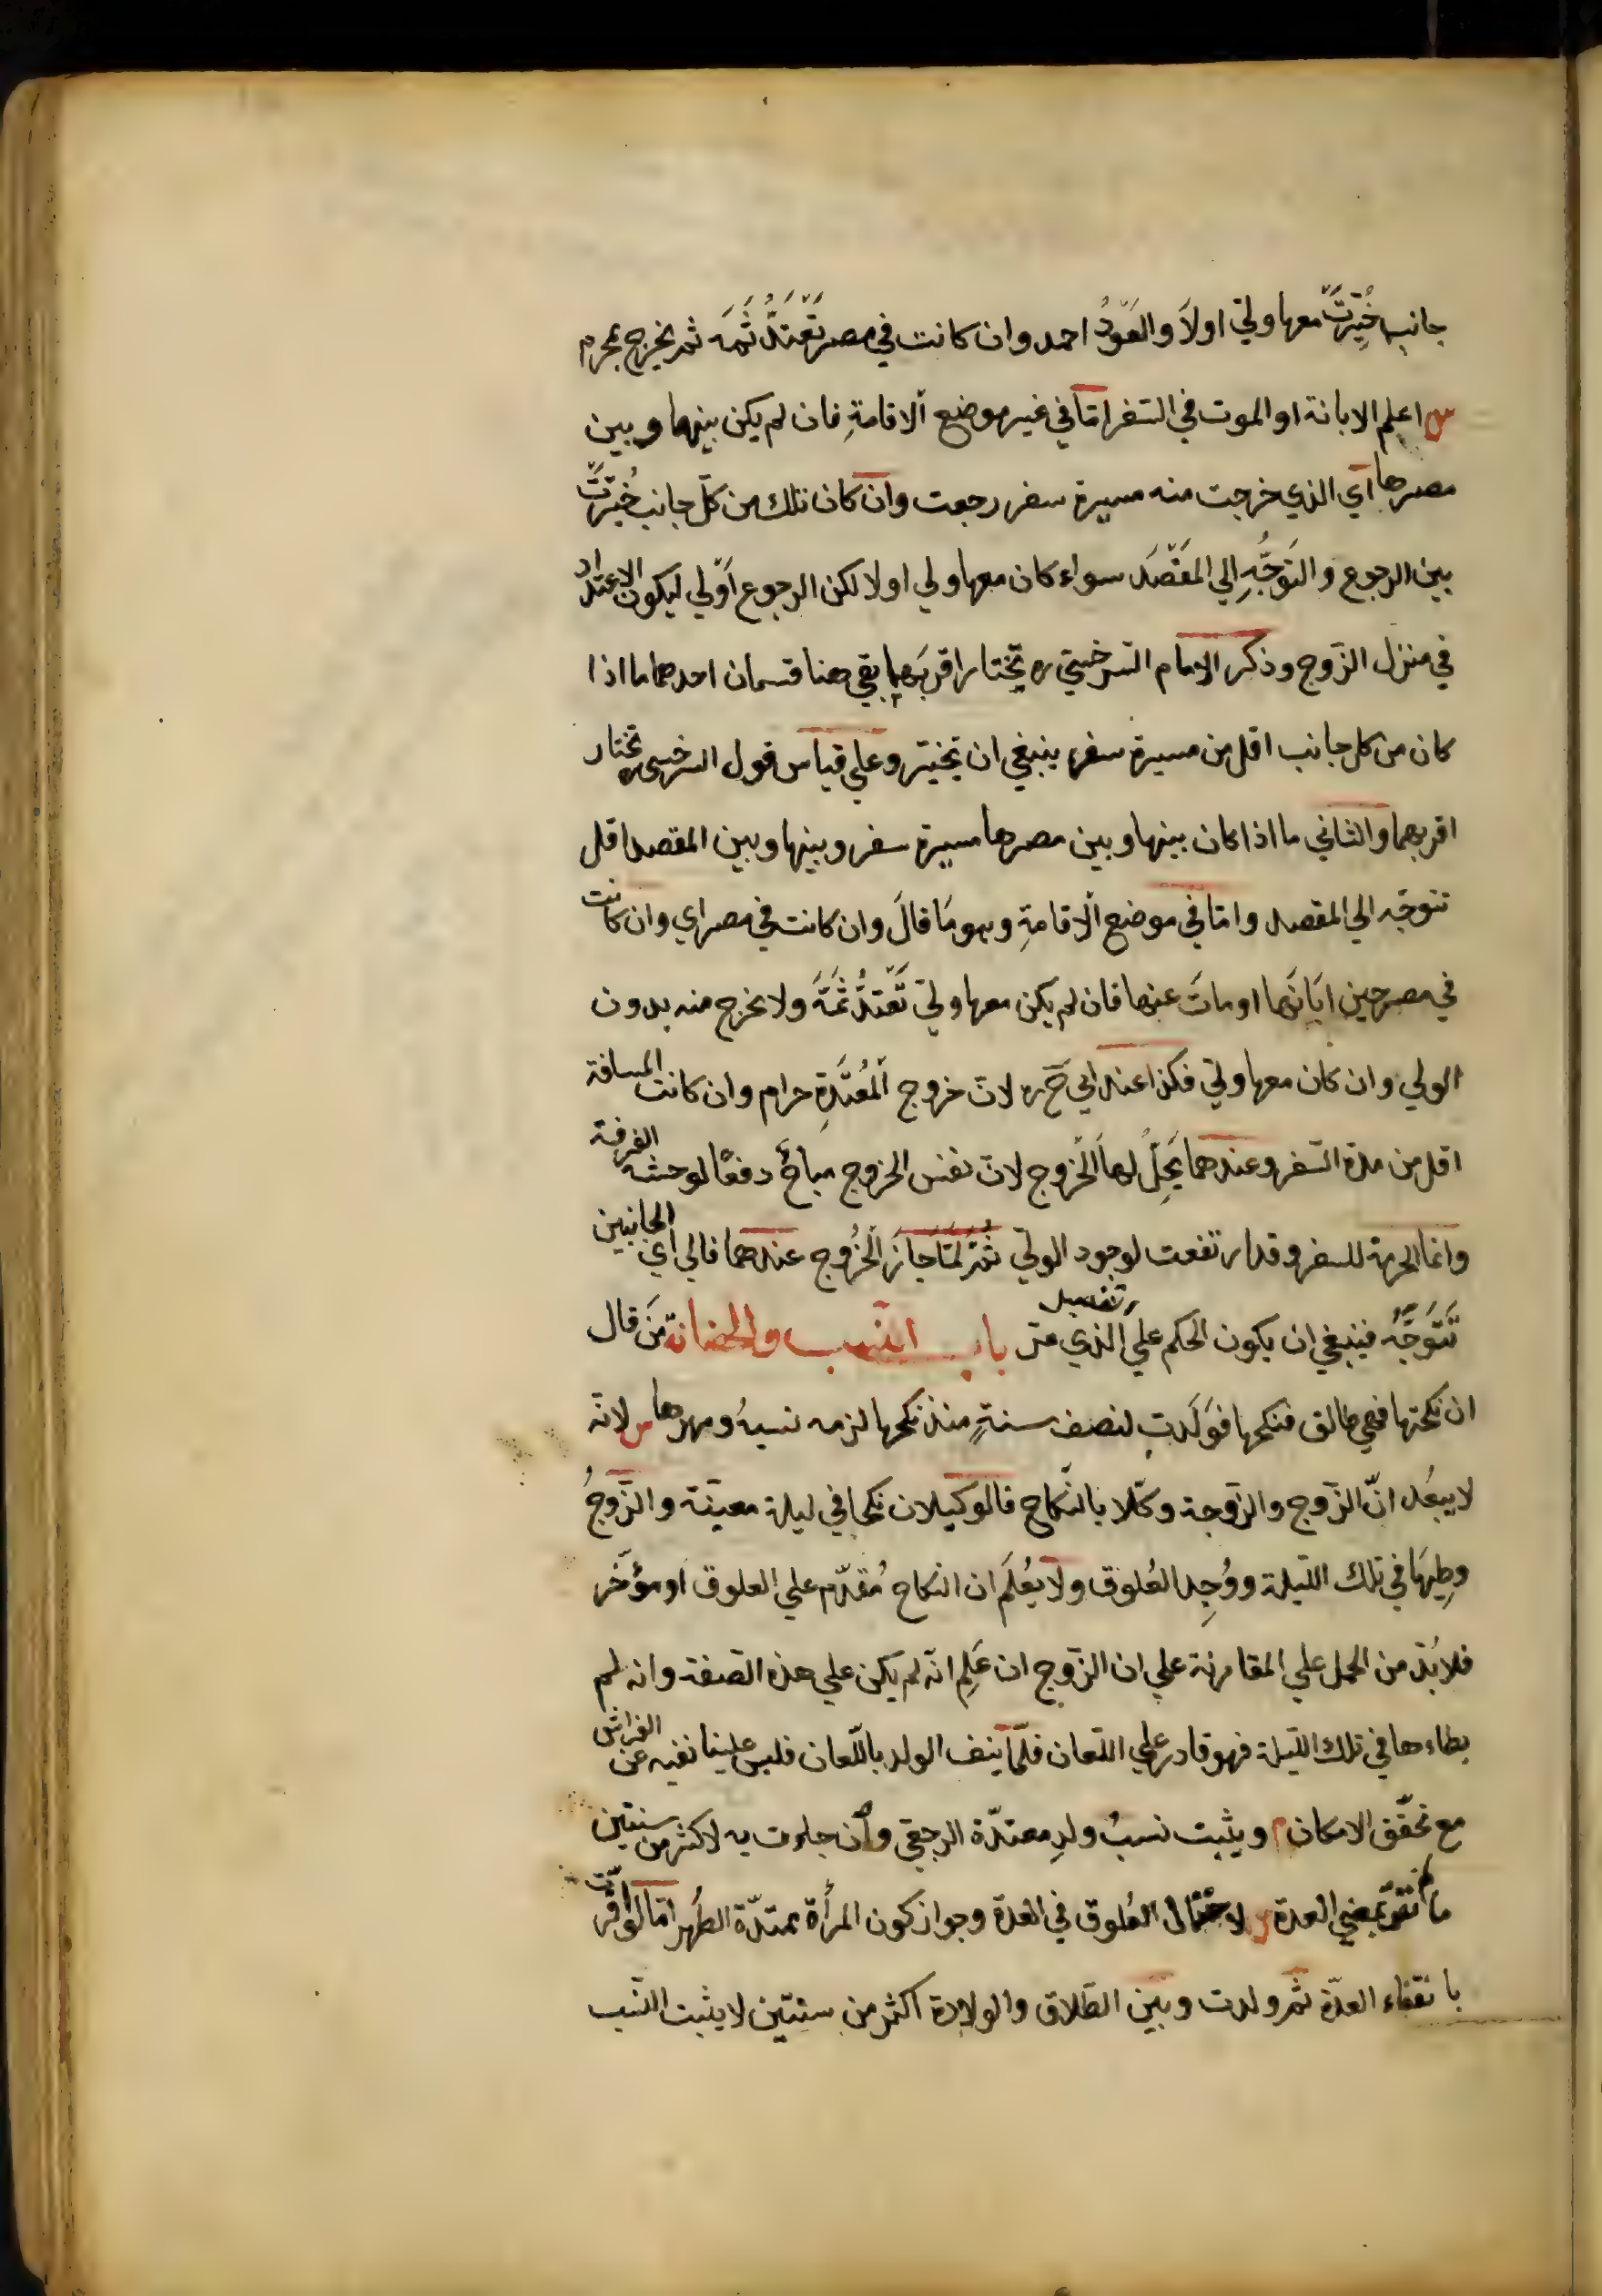 جانب خُيِّرَتْ معها وليّ اولاَ والعَوْدُ احمد وان كانت في مصر تَعْتَدُّ ثَمَه ثمّ يخرج بمحرم
س اعلم الابانة او الموت في السّفر امّا في غير موضع الاقامةِ فان لم يكن بينها وبين
مصرها اي الذي خرجت منه مسيرة سفر رجعت وان كان تلك من كلّ جانب خُيِّرَتْ
بين الرجوع والتَوَجُّهِ الي المَقْصَد سواء كان معها ولي اولا لكن الرجوع اَوْلي ليكون الاعتداد
في منزل الزّوج وذكر الامام السّرخسيّ ره تختار اقربهما بقي هنا قسمان احدهما ما اذا
كان من كل جانب اقل من مسيرة سفر ينبغي ان تخيّر وعلي قياس قول السرخسي ره تختار
اقربهما والثاني ما اذا كان بينها وبين مصرها مسيرة سفر وبينها وبين المقصد اقل
تتوجّه الي المقصد وامّا في موضع الاقامةِ وهو مَا قالَ وان كانت في مصر اي وان كانت
في مصر حين ابَانَها او ماتَ عنها فان لم يكن معها وليّ تَعْتَدُّ ثَمَّهَ ولا تخرج منه بدون
الولي وان كان معها وليّ فكذا عند ابي حَ ره لانّ خروج المُعْتَدَّةِ حرام وان كانت المسافة
اقل من مدة السّفر وعندهما يَحِلُّ لها الخُروج لانّ نفس الخروج مباحٌ دفعًا لوحشه الفرقة
وانما الحرمة للسفر وقد ارتفعت لوجود الوليّ ثُمَّ لَمَّا جازَ الخُرُوج عندهما فالي اي الجانبين
تَتَوَجَّهُ فينبغي ان يكون الحكم علي تفصيل الذي مرّ باب النّسب والحضانة مَن قال
ان نكحتها فهي طالق فنكحها فوَلَدت لنصف سنةٍ منذ نكحها لزمه نسبهُ ومهرها س لانّه
لا يبعُد انّ الزّوج والزّوجة وكّلا بالنّكاح فالوكيلان نكحا في ليلة معيّنة والزّوجُ
وطِيهَا في تلك اللّيلة ووُجِد العُلوق ولا يعُلَم ان النكاح مُقدّم علي العلوق اَو مؤخّر
فلا بُدّ من الحمل علي المقارنة علي ان الزّوج ان عَلِم انّه لم يكن علي هذه الصّفة وانه لم
يطاءها في تلك اللّيلة فهو قادر علي اللّعان فلمّا ينف الولد باللّعان فليس علينا نفيه عن الفراش
مع تحقّق الامكان م ويثبت نسبُ ولدِ معتدّة الرجعيّ وان جاءت به لاكثر من سنتين
ما لم تقرّ بمضي العدة س لاحتمال العُلوق في العدة وجواز كون المرأة ممتدّة الطُهر امّا لو اقرّت
بانقضاء العدّة ثمّ ولدت وبَيْن الطّلاق والولادة اكثر من سنتين لا يثبت النّسب